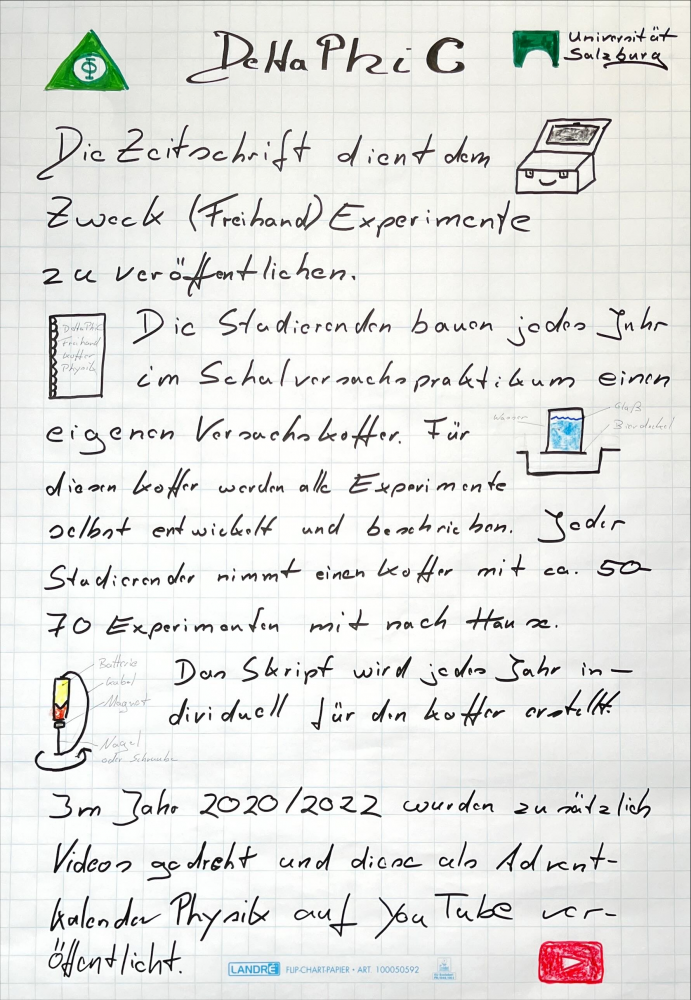 Φ
DeltaPhi C
Universität
Salzburg
Die Zeitschrift dient dem
Zweck (Freihand) Experimente
zu veröffentlichen.
DeltaPhi C
Freihand
koffer
Physik
Die Studierenden bauen jedes Jahr
im Schulversuchspraktikum einen
eigenen Versuchskoffer. Für
Wasser
Glaß
Bierdeckel
diesen koffer werden alle Experimente
selbst entwickelt und beschrieben. Jeder
Studierender nimmt einen koffer mit ca. 50-
70 Experimenten mit nach Hause.
Batterie
Kabel
Magnet
Nagel
oder Schraube
Das Skript wird jedes Jahr in-
dividuell für den koffer erstellt.
Im Jahr 2020/2022 wurden zusätzlich
Videos gedreht und diese als Advent-
kalender Physik auf YouTube ver-
öffentlicht.
LANDRÉ FLIP-CHART-PAPIER • ART. 100050592